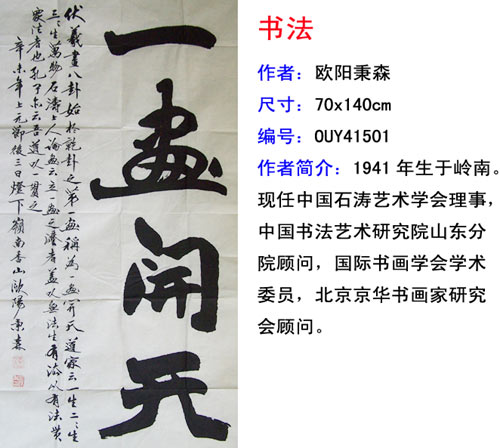 一畫開天
伏羲畫八卦始於乾卦之第一畫稱為一畫開天道家云一生二二生
三三生萬物石濤上人論畫云立一畫之灋者蓋以無法生有法以有法貫
眾法者也孔子亦云吾道以一貫之
辛未年上元節後三日燈下嶺南香山歐陽秉森
书法
作者：欧阳秉森
尺寸：70x140cm
编号：OUY41501
作者简介：1941年生于岭南。
现任中国石涛艺术学会理事，
中国书法艺术研究院山东分
院顾问，国际书画学会学术
委员，北京京华书画家研究
会顾问。